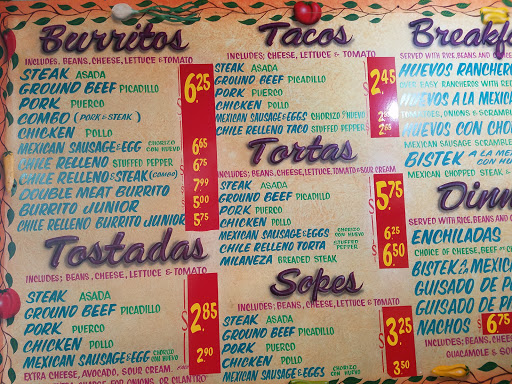 Burritos
INCLUDES, BEANS, CHEESE, LETTUCE & TOMATO
STEAK ASADA
GROUND BEEF PICADILLO
PORK PUERCO
COMBO (PORK & STEAK)
CHICKEN POLLO
6.25
MEXICAN SAUSAGE & EGG CHORIZO CON HUEVO 6.65
CHILE RELLENO STUFFED PEPPER 6.75
CHILE RELLENO & STEAK (COMBO) 7.99
DOUBLE MEAT BURRITO
BURRITO JUNIOR 5.00
CHILE RELLENO BURRITO JUNIOR 5.75
Tostadas
INCLUDES; BEANS, CHEESE, LETTUCE & TOMATO
STEAK ASADA
GROUND BEEF PICADILLO
PORK PUERCO
CHICKEN POLLO
$2.85
MEXICAN SAUSAGE & EGG CHORIZO CON HUEVO 2.90
EXTRA CHEESE, AVOCADO, SOUR CREAM.
CHARGE FOR ONIONS, OR CILANTRO
Tacos
INCLUDES; CHEESE, LETTUCE & TOMATO
STEAK ASADA
GROUND BEEF PICADILLO
PORK PUERCO
CHICKEN POLLO
$2.45
MEXICAN SAUSAGE & EGGS CHORIZO & HUEVO
CHILE RELLENO TACO STUFFED PEPPER
Tortas
INCLUDES; BEANS, LETTUCE, TOMATO & SOUR CREAM
STEAK ASADA
GROUND BEEF PICADILLO
PORK PUERCO
CHICKEN POLLO
$5.75
MEXICAN SAUSAGE & EGGS CHORIZO CON HUEVO 6.25
CHILE RELLENO TORTA STUFFED PEPPER
MILANEZA BREADED STEAK
6.50
Sopes
INCLUDES; BEANS, CHEESE, LETTUCE & TOMATO
STEAK ASADA
GROUND BEEF PICADILLO
PORK PUERCO
CHICKEN POLLO
$3.25
MEXICAN SAUSAGE & EGGS CHORIZO CON HUEVO 3.50
SERVED WITH RICE, BEANS AND
HUEVOS RANCHER
EASY RANCHERS WITH
HUEVOS A LA MEXICA
TOMATOES, ONIONS & SCRAMB
HUEVOS CON CHO
MEXICAN SAUSAGE SCRAMB
BISTEK A LA ME
MEXICAN CHOPPED STEAK
Dinn
SERVED WITH RICE, BEANS AND
ENCHILADAS
CHOICE OF CHEESE, BEEF
BISTEK A LA MEXICA
GUISADO DE P
GUISADO DE P
NACHOS $6.75
INCLUDES; BEANS, CHEESE
GUACAMOLE & SOU